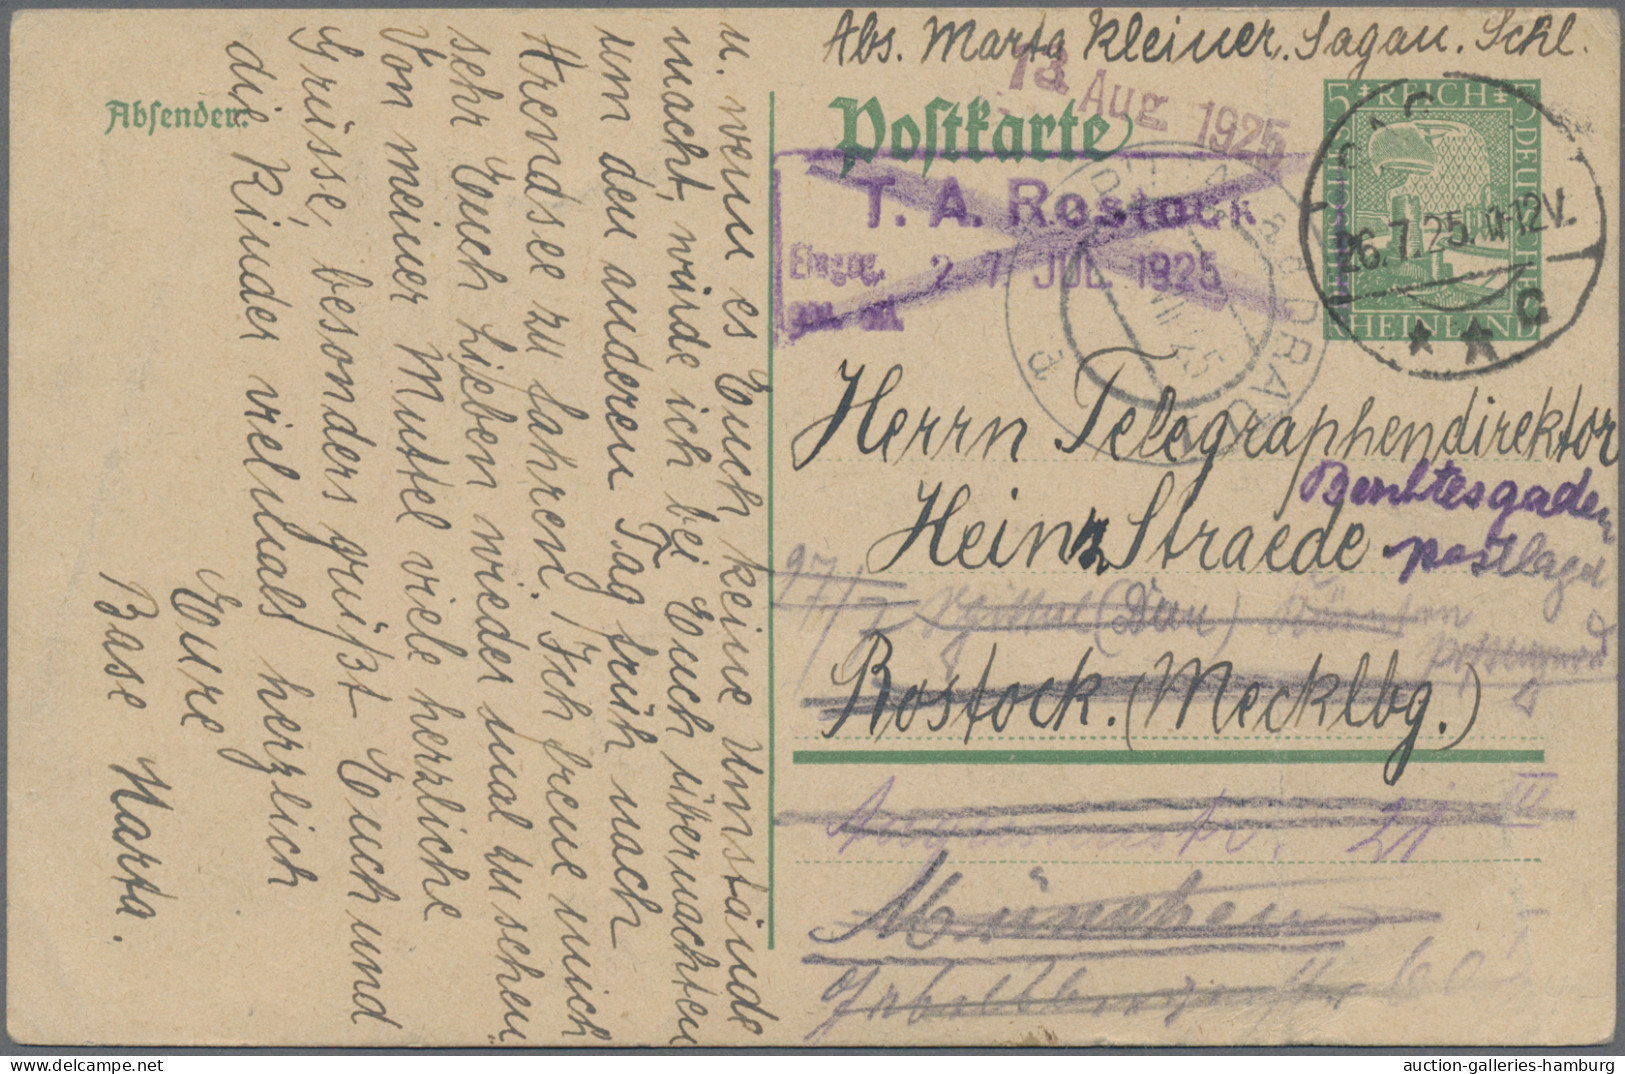 Abs. Marta Kleiner. Sagan. Schl.
Absender:
Postkarte
13. Aug. 1925
5 REICH 5
DEUTSCHES
DEUTSCHE
RHEINLAND
26.7.25. 11-12V.
T. A. Rostock
Eingeg. 27. JUL. 1925
Herrn Telegraphendirektor
Heinz Straede
Berchtesgaden
postlagd
27/7
(Drau) Kärnten
Rostock. (Mecklbg.)
München
u. wenn es Euch keine Umstände
macht, würde ich bei Euch übernachten
um den anderen Tag früh nach
Arendsee zu fahren. Ich freue mich
sehr Euch Lieben wieder mal zu sehen.
Von meiner Muttel viele herzliche
Grüsse, besonders grüßt Euch und
die Kinder vielmals herzlich
Eure
Base Marta.
auction-galleries-hamburg